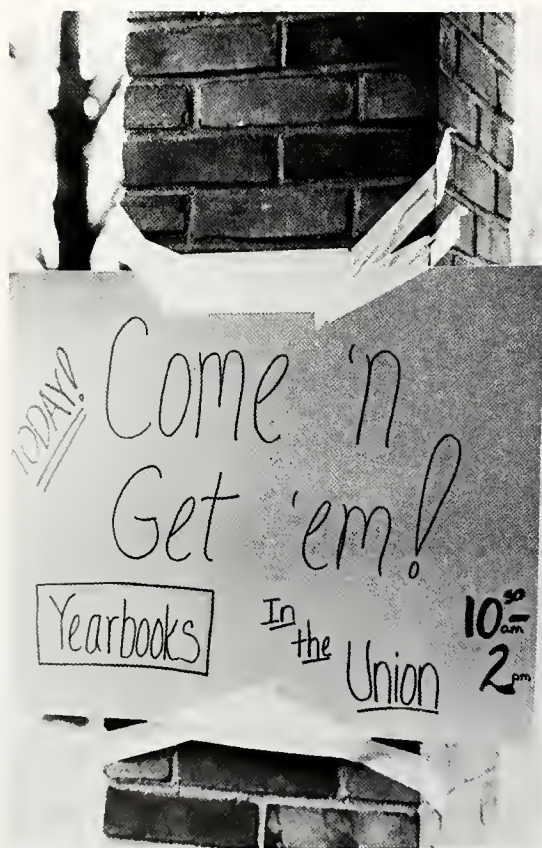 TODAY!
Come 'n
Get 'em!
Yearbooks
In
the
Union
10 30 am –
2 pm